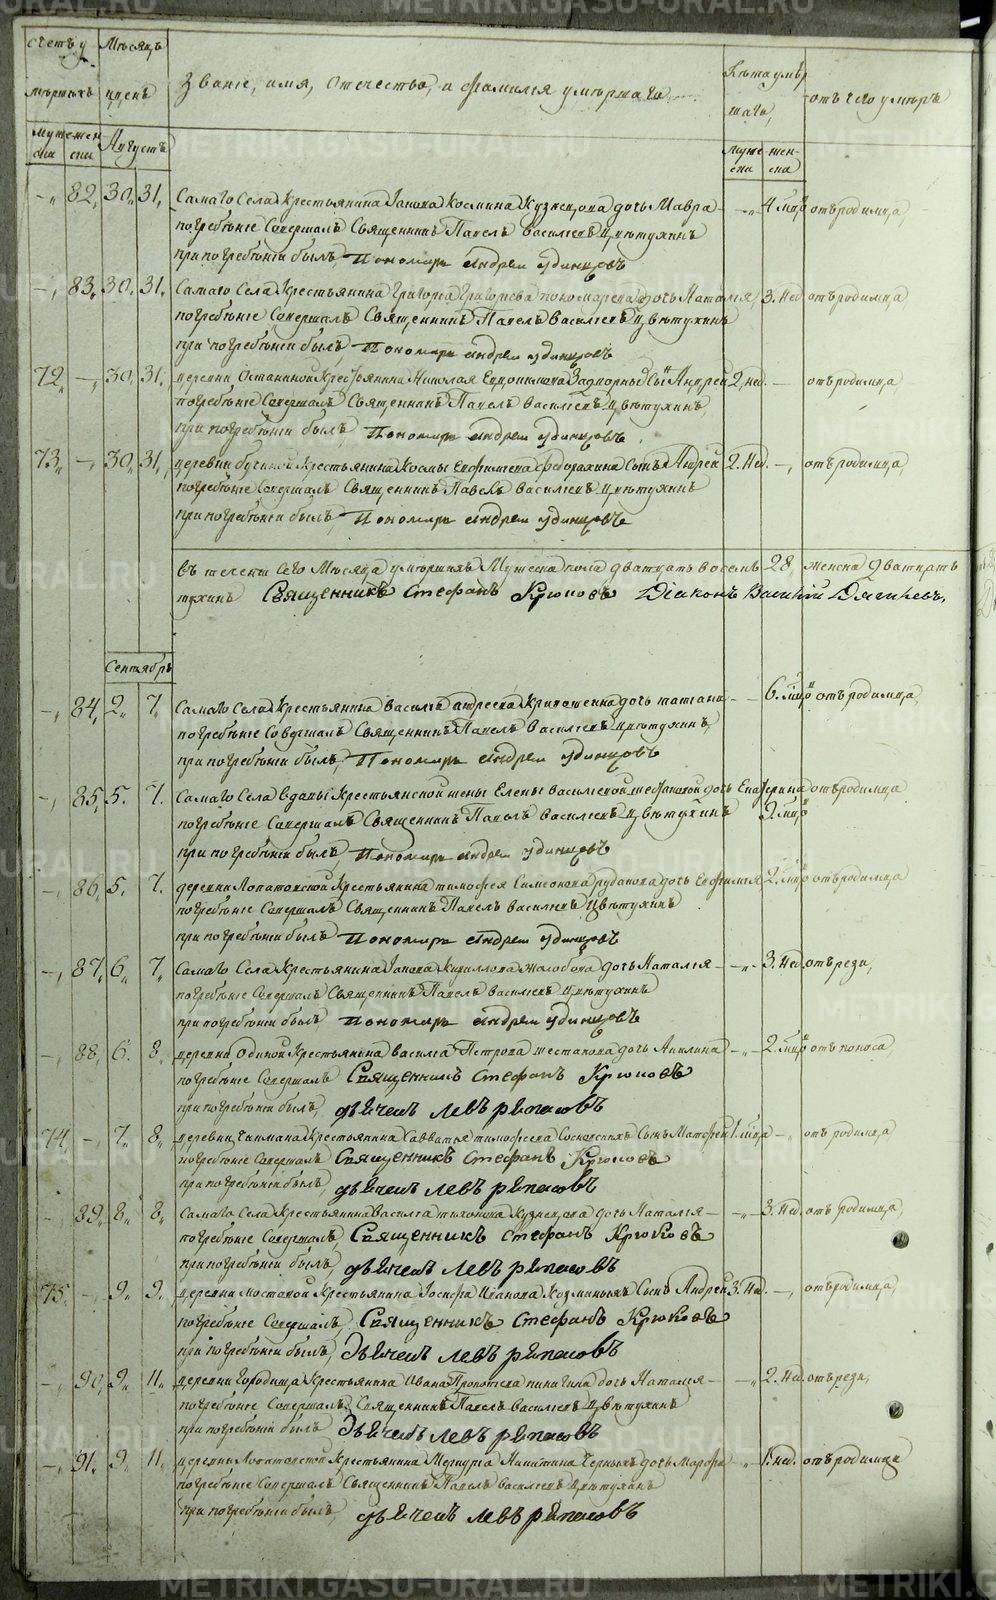 METRIKI.GASO-URAL.RU
Счетъ умершихъ Мѣсяцъ и день Званіе, имя, отечество, и фамилія умершаго Лѣта умершаго, отъ чего умеръ
мужески женски Августъ мужеска женска
-„ 82, 30, 31, Самаго Села Крестьянина Іакова Космина Кузнецова дочь Мавра - -„- 4 мцъ отъ родимца
погребеніе Совершалъ Священникъ Павелъ Васильевъ Цвѣтухинъ
при погребеніи былъ, Пономарь Андрей Удинцовъ
-„ 83, 30, 31. Самаго Села Крестьянина Григорья Григорьева Пономарева дочь Наталія, 3. Нед. отъ родимца
погребеніе Совершалъ Священникъ Павелъ Васильевъ Цвѣтухинъ
при погребеніи былъ, Пономарь Андрей Удинцовъ
72, -, 30, 31. деревни Останиной Крестьянина Николая Сынъ Андрей 2, нед. - отъ родимца
погребеніе Совершалъ Священникъ Павелъ Васильевъ Цвѣтухинъ,
при погребеніи былъ, Пономарь Андрей Удинцовъ
73, -, 30, 31, деревни Крестьянина Козмы Сынъ Андрей 2. Нед. -, отъ родимца
погребеніе Совершалъ Священникъ Павелъ Васильевъ Цвѣтухинъ
при погребеніи былъ, Пономарь Андрей Удинцовъ
въ теченіи Сего Мѣсяца умершихъ Мужеска пола дватцать восемь 28, женска дватцать
Священникъ Стефанъ Крюковъ Діаконъ Василій Дягилевъ,
Сентябрь
-, 84, 2. 7. Самаго Села Крестьянина Василья Андреева Кривошеина дочь Татіана - - 6. мцъ отъ родимца,
погребеніе Совершалъ Священникъ Павелъ Васильевъ Цвѣтухинъ,
при погребеніи былъ, Пономарь Андрей Удинцовъ
-, 85, 5. 7. Самаго Села вдовы Крестьянской жены Елены Васильевой дочь Екатерина отъ родимца
погребеніе Совершалъ Священникъ Павелъ Васильевъ Цвѣтухинъ 9 мцъ
при погребеніи былъ, Пономарь Андрей Удинцовъ
-, 86, 5. 7. деревни Лопатовской Крестьянина Тимофея Симеонова Рудакова дочь Евфимія 2. мцъ отъ родимца
погребеніе Совершалъ Священникъ Павелъ Васильевъ Цвѣтухинъ
при погребеніи былъ Пономарь Андрей Удинцовъ
-, 87, 6, 7, Самаго Села Крестьянина Іакова Кириллова Жолобова дочь Наталія - -„- 3. Нед. отъ рези,
погребеніе Совершалъ Священникъ Павелъ Васильевъ Цвѣтухинъ
при погребеніи былъ Пономарь Андрей Удинцовъ
-, 88, 6. 8, деревни Одиной Крестьянина Василія Петрова Шестакова дочь Акилина -„- 2. мцъ отъ поноса
погребеніе Совершалъ Священникъ Стефанъ Крюковъ
при погребеніи былъ, дьячекъ Левъ Рѣпасовъ
74, -, 7. 8, деревни Чикмана Крестьянина Савватія Тимофеева Сосновскихъ Сынъ Матфей 1 мцца -, отъ родимца
погребеніе Совершалъ Священникъ Стефанъ Крюковъ
при погребеніи былъ, дьячекъ Левъ Рѣпасовъ
-, 89, 8, 8, Самаго Села Крестьянина Василія Тихонова Кузнецова дочь Наталія - -„- 3. Нед. отъ родимца,
погребеніе Совершалъ, Священникъ Стефанъ Крюковъ
при погребеніи былъ, дьячекъ Левъ Рѣпасовъ
75, -, 9. 9. деревни Мостовой Крестьянина Іосифа Иванова Козминыхъ Сынъ Андрей 3. Нд. -, отъ родимца,
погребеніе Совершалъ, Священникъ Стефанъ Крюковъ
при погребеніи былъ, Дьячекъ Левъ Рѣпасовъ
-, 90, 9. 11. деревни Городища Крестьянина Ивана Прокопіева Пинигина дочь Наталія - -„ 2. Нед. отъ рези,
погребеніе Совершалъ, Священникъ Павелъ Васильевъ Цвѣтухинъ
при погребеніи былъ Дьячекъ Левъ Рѣпасовъ
-, 91. 9. 11, деревни Лопатовской Крестьянина Меркурія Никитина Черныхъ дочь Марфа -„- 1. нед. отъ родимца
погребеніе Совершалъ Священникъ Павелъ Васильевъ Цвѣтухинъ
при погребеніи былъ, дьячекъ Левъ Рѣпасовъ
METRIKI.GASO-URAL.RU